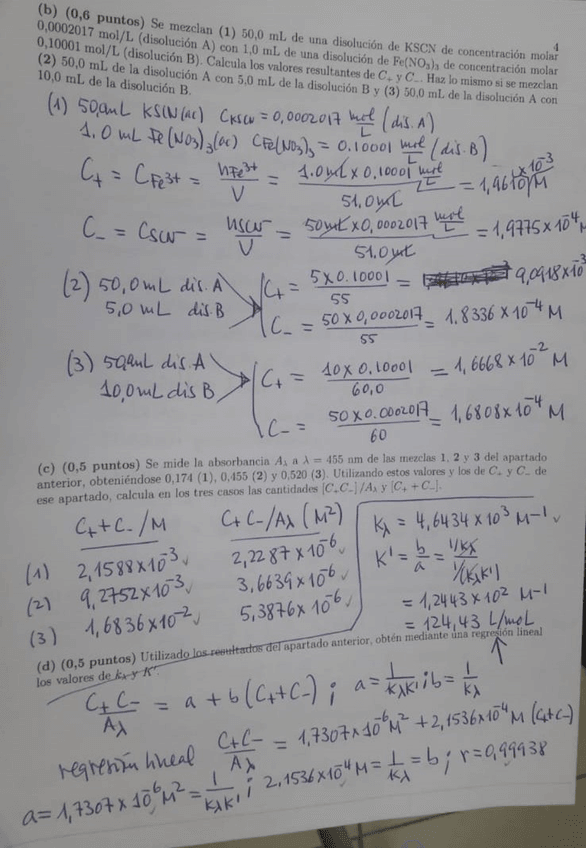 4
(b) (0,6 puntos) Se mezclan (1) 50,0 mL de una disolución de KSCN de concentración molar
0,0002017 mol/L (disolución A) con 1,0 mL de una disolución de Fe(NO₃)₃ de concentración molar
0,10001 mol/L (disolución B). Calcula los valores resultantes de C₊ y C₋. Haz lo mismo si se mezclan
(2) 50,0 mL de la disolución A con 5,0 mL de la disolución B y (3) 50,0 mL de la disolución A con
10,0 mL de la disolución B.
(1) 50,0mL KSCN(ac) C_KSCN = 0,0002017 mol/L (dis. A)
1.0 mL Fe(NO₃)₃(ac) C_Fe(NO₃)₃ = 0.10001 mol/L (dis. B)
C₊ = C_Fe³⁺ = n_Fe³⁺/V = 1.0mL × 0,10001 mol/L / 51,0mL = 1,9610 × 10⁻³ M
C₋ = C_SCN⁻ = n_SCN⁻/V = 50mL × 0,0002017 mol/L / 51.0mL = 1,9775 × 10⁻⁴ M
(2) 50,0 mL dis. A
5,0 mL dis. B
C₊ = 5 × 0.10001 / 55 = 9,0918 × 10⁻³
C₋ = 50 × 0,0002017 / 55 = 1.8336 × 10⁻⁴ M
(3) 50,0mL dis. A
10,0 mL dis B
C₊ = 10 × 0.10001 / 60,0 = 1,6668 × 10⁻² M
C₋ = 50 × 0.0002017 / 60 = 1,6808 × 10⁻⁴ M
(c) (0,5 puntos) Se mide la absorbancia A_λ a λ = 455 nm de las mezclas 1, 2 y 3 del apartado
anterior, obteniéndose 0,174 (1), 0,455 (2) y 0,520 (3). Utilizando estos valores y los de C₊ y C₋ de
ese apartado, calcula en los tres casos las cantidades [C₊C₋]/A_λ y [C₊ + C₋].
C₊+C₋ /M C₊C₋/A_λ (M²)
(1) 2,1588 × 10⁻³ ✓ 2,2287 × 10⁻⁶ ✓
(2) 9,2752 × 10⁻³ ✓ 3,6639 × 10⁻⁶ ✓
(3) 1,6836 × 10⁻² ✓ 5,3876 × 10⁻⁶ ✓
K_λ = 4,6434 × 10³ M⁻¹ ✓
K' = b/a = 1/K_λ / 1/(K_λK')
= 1,2443 × 10² M⁻¹
= 124,43 L/mol
(d) (0,5 puntos) Utilizado los resultados del apartado anterior, obtén mediante una regresión lineal
los valores de k_λ y K'.
C₊C₋/A_λ = a + b (C₊+C₋) ; a = 1/K_λK' ; b = 1/K_λ
regresión lineal C₊C₋/A_λ = 1,7307 × 10⁻⁶ M² + 2,1536 × 10⁻⁴ M (C₊+C₋)
a = 1,7307 × 10⁻⁶ M² = 1/K_λK' ; 2,1536 × 10⁻⁴ M = 1/K_λ = b ; r = 0,99938